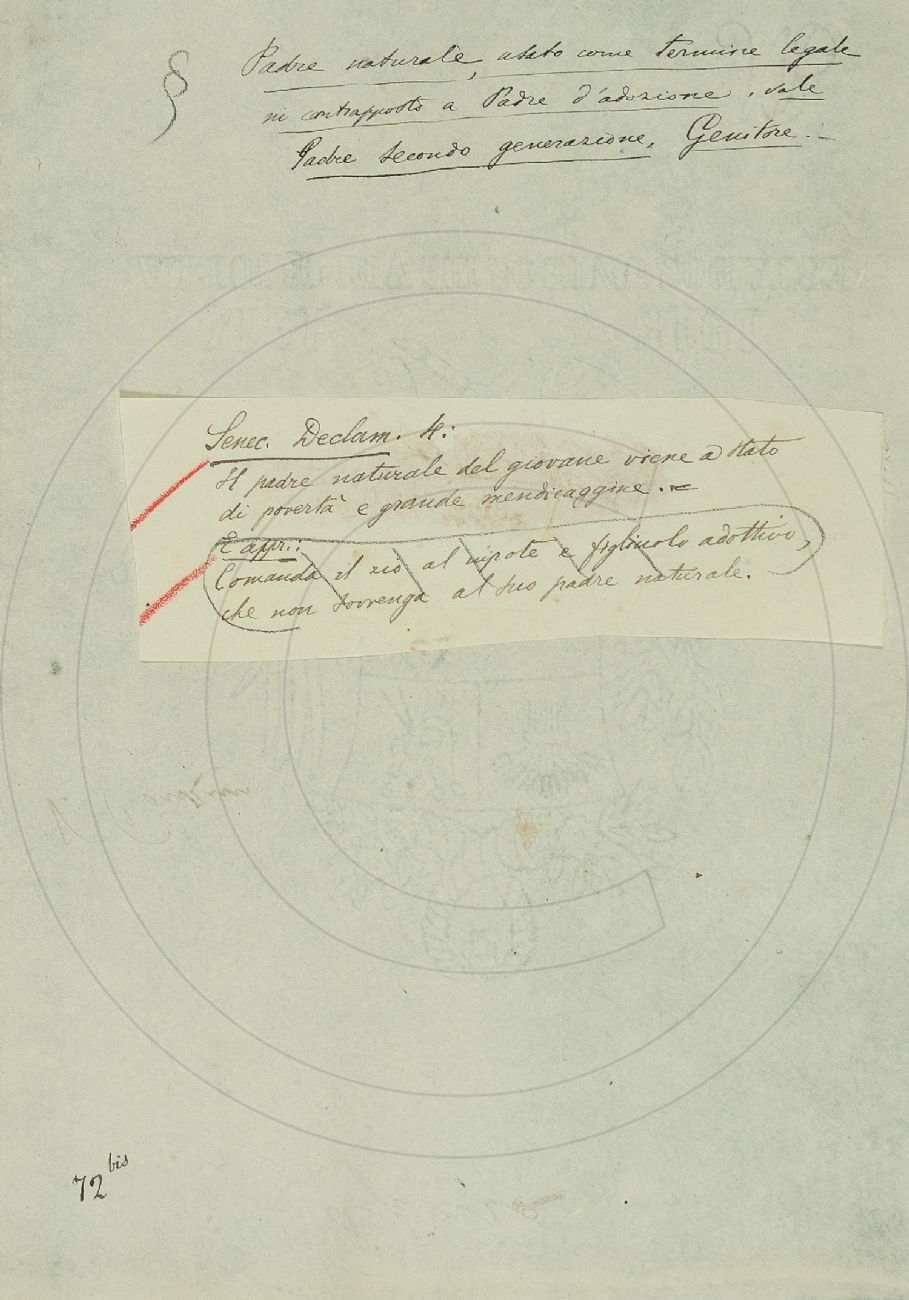 § Padre naturale, usato come termine legale
in contrapposto a Padre d'adozione, vale
Padre secondo generazione, Genitore. –
Senec. Declam. 4:
Il padre naturale del giovane viene a stato
di povertà e grande mendicaggine. =
E appr.:
Comanda il zio al nipote e figliuolo adottivo,
che non sovvenga al suo padre naturale.
72 bis